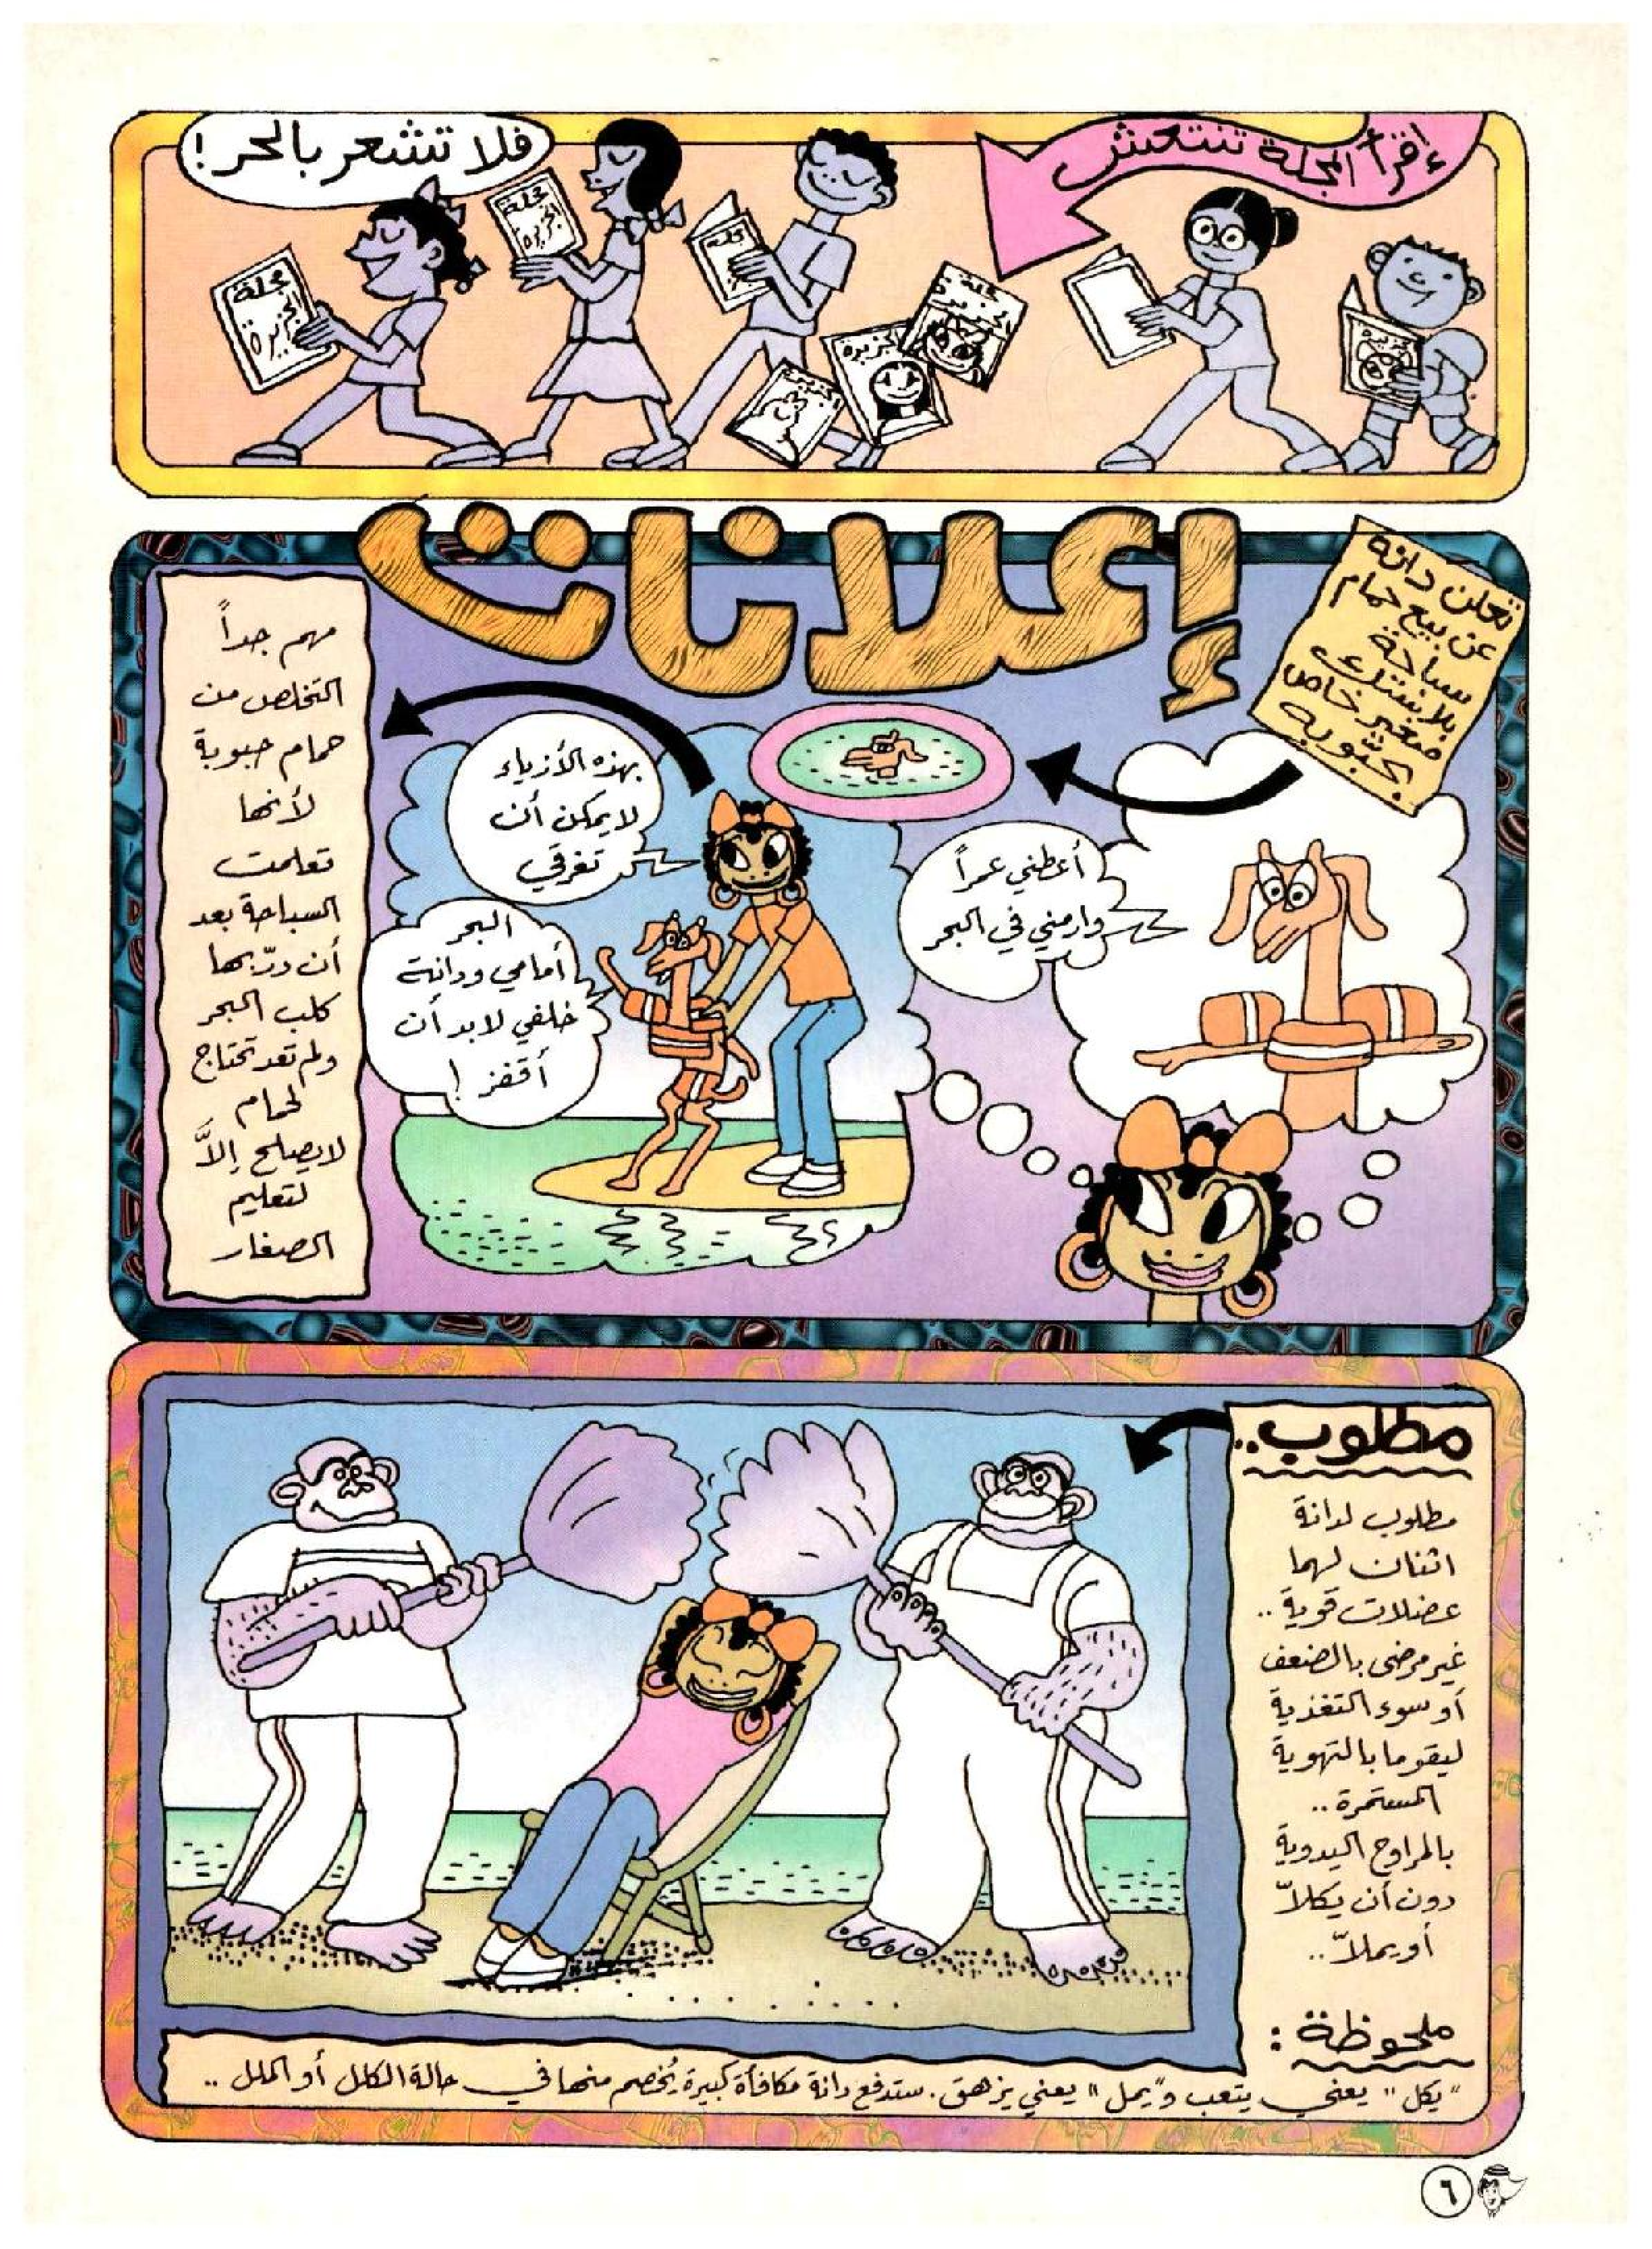 إقرأ المجلة تنتعش
فلا تشعر بالحر!
مجلة
الجزيرة
مجلة
الجزيرة
مجلة
إعلانات
تعلن دانه
عن بيع حمام
سباحة
بلاستيك
صغير خاص
بحبّوبه
أعطني عمراً
وارمني في البحر
بهذه الأزياء
لا يمكن أن
تغرقي
البحر
أمامي ودانة
خلفي لابد أن
أقفز !
مهم جداً
التخلص من
حمام حبوبة
لأنها
تعلمت
السباحة بعد
أن درّبها
كلب البحر
ولم تعد تحتاج
لحمام
لا يصلح إلاَّ
لتعليم
الصغار
مطلوب..
مطلوب لدانة
اثنان لهما
عضلات قوية ..
غير مرضى بالضعف
أو سوء التغذية
ليقوما بالتهوية
المستمرة ..
بالمراوح اليدوية
دون أن يكلاّ
أو يملاّ ..
ملحوظة :
"يكل" يعني يتعب و"يمل" يعني يزهق. ستدفع دانة مكافأة كبيرة يُخصم منها في حالة الكلل أو الملل ..
٦